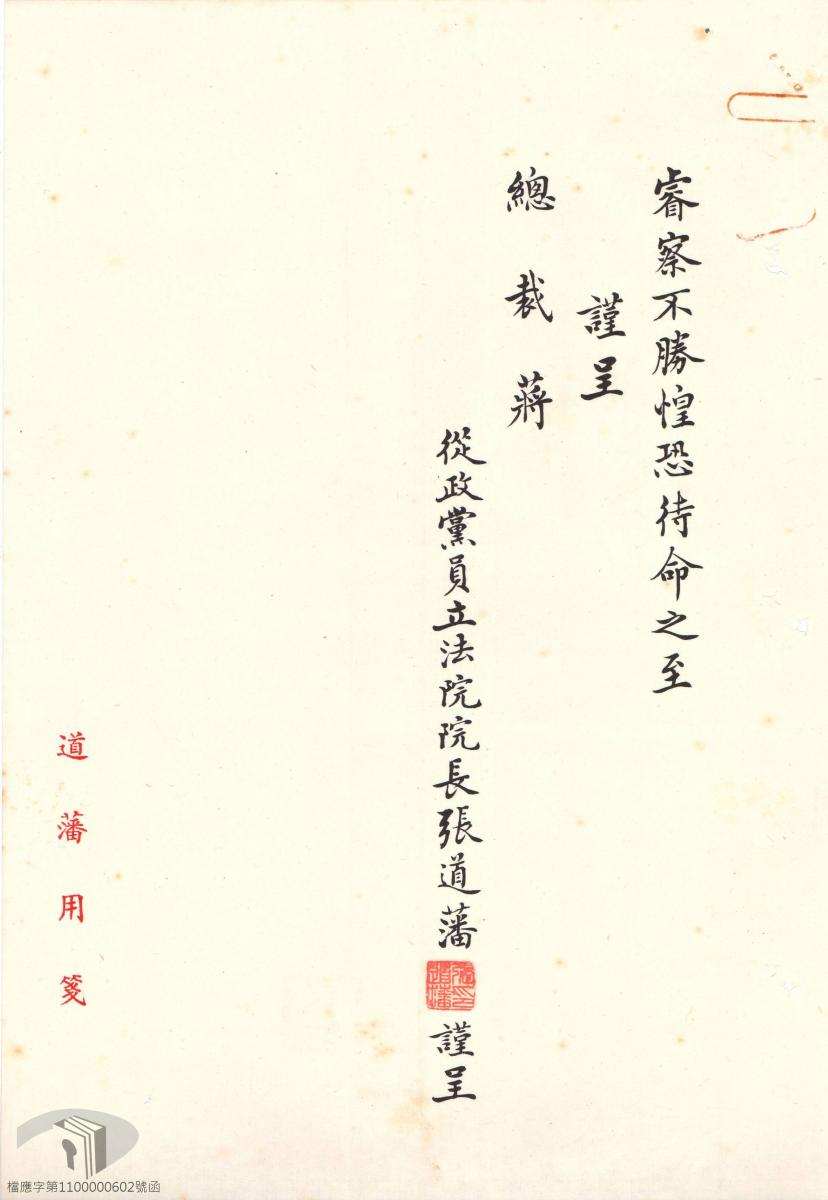 睿察不勝惶恐待命之至
謹呈
總裁蔣
從政黨員立法院院長張道藩
張道藩印
謹呈
道藩用箋
檔應字第1100000602號函